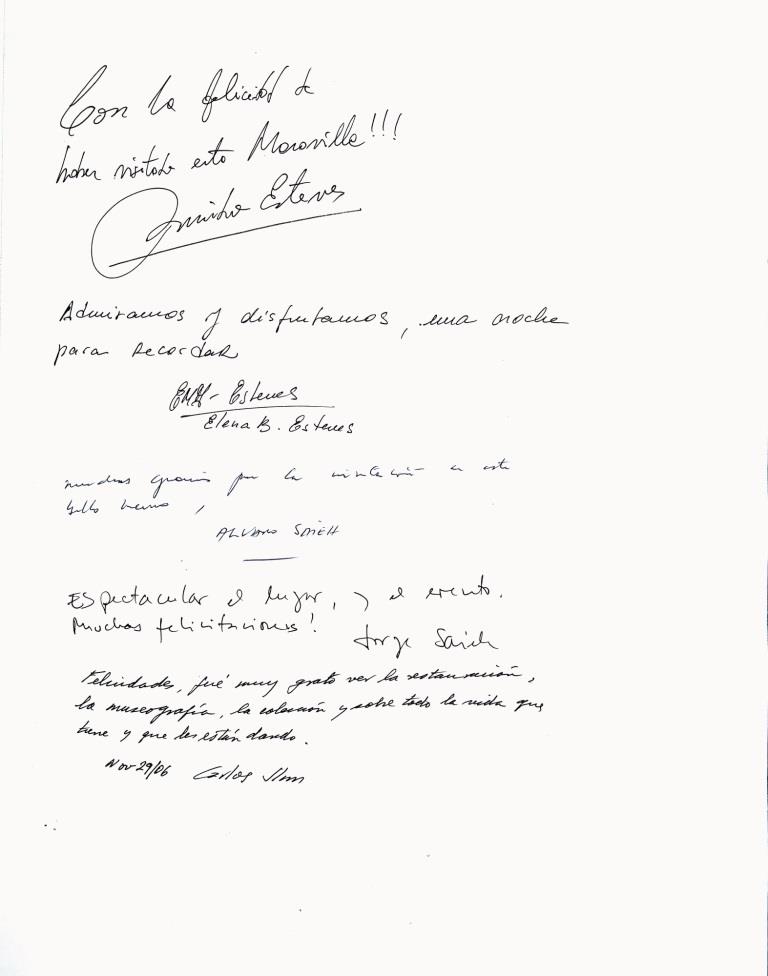 Con la felicidad de
haber visitado esta Maravilla!!!
Esteves
Admiramos y disfrutamos, una noche
para recordar
Esteves
Elena B. Esteves
muchas gracias por la invitación a este
bello
ALVARO SAIEH
Espectacular el lugar, y el evento.
Muchas felicitaciones! Jorge Saieh
Felicidades, fué muy grato ver la restauración,
la museografía, la colección y sobre todo la vida que
tiene y que les están dando.
Nov 29/06 Carlos Slim